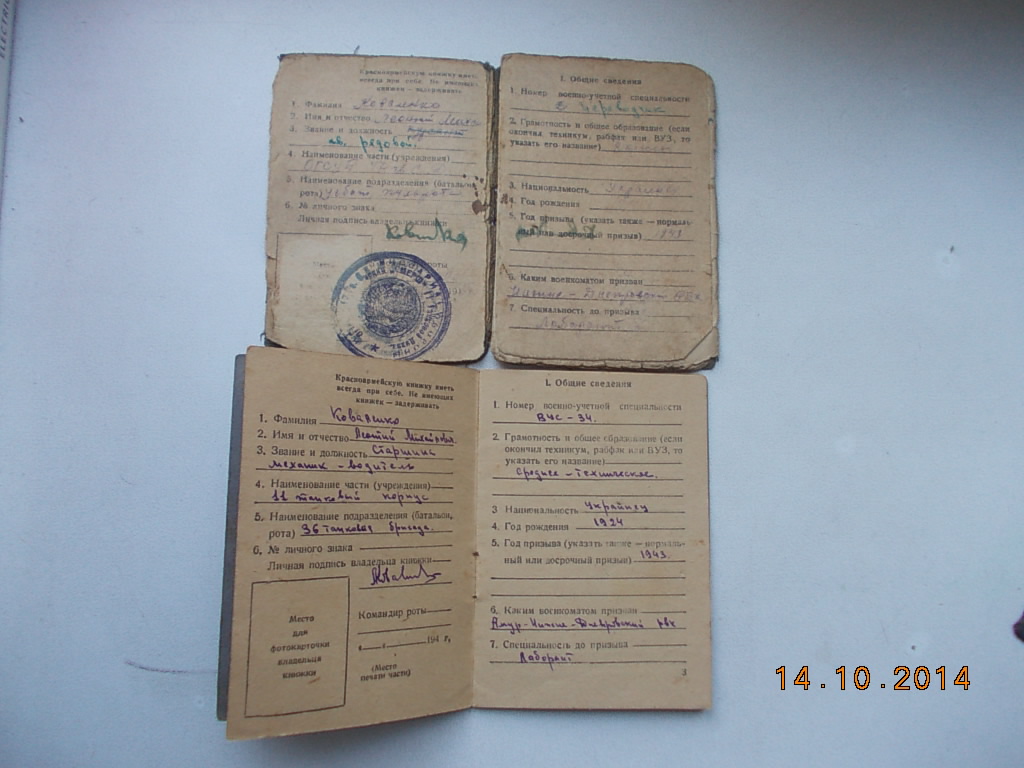 Красноармейскую книжку иметь
всегда при себе. Не имеющих
книжек — задерживать
1. Фамилия Коваленко
2. Имя и отчество
3. Звание и должность
гв. рядовой.
4. Наименование части (учреждения)
5. Наименование подразделения (батальон,
рота)
6. № личного знака
Личная подпись владельца книжки
I. Общие сведения
1. Номер военно-учетной специальности
2. Грамотность и общее образование (если
окончил техникум, рабфак или ВУЗ, то
указать его название)
3. Национальность Украинец
4. Год рождения
5. Год призыва (указать также — нормаль-
ный или досрочный призыв) 1943
6. Каким военкоматом призван
7. Специальность до призыва
Лаборант
Красноармейскую книжку иметь
всегда при себе. Не имеющих
книжек — задерживать
1. Фамилия Коваленко
2. Имя и отчество Леонтий
3. Звание и должность Старшина
механик - водитель
4. Наименование части (учреждения)
11 танковый корпус
5. Наименование подразделения (батальон,
рота) 36 танковая бригада.
6. № личного знака
Личная подпись владельца книжки
Место
для
фотокарточки
владельца
книжки
Командир роты
194 г.
(Место
печати части)
I. Общие сведения
1. Номер военно-учетной специальности
ВУС - 34.
2. Грамотность и общее образование (если
окончил техникум, рабфак или ВУЗ, то
указать его название)
Средне - техническое.
3 Национальность Украинец
4. Год рождения 1924
5. Год призыва (указать также — нормаль-
ный или досрочный призыв) 1943.
6. Каким военкоматом призван
Амур-Нижне-Днепровский рвк
7. Специальность до призыва
Лаборант
3
14.10.2014